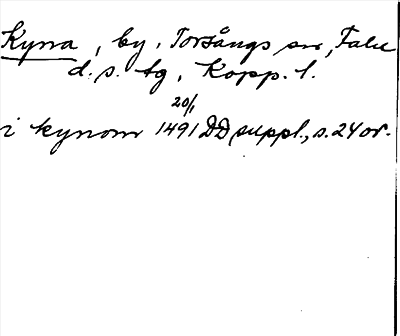 Kyna, by, Torsångs sn, Falu
d. s. tg, Kopp. l.
20/1
i kynom 1491 DD suppl., s. 24 or.